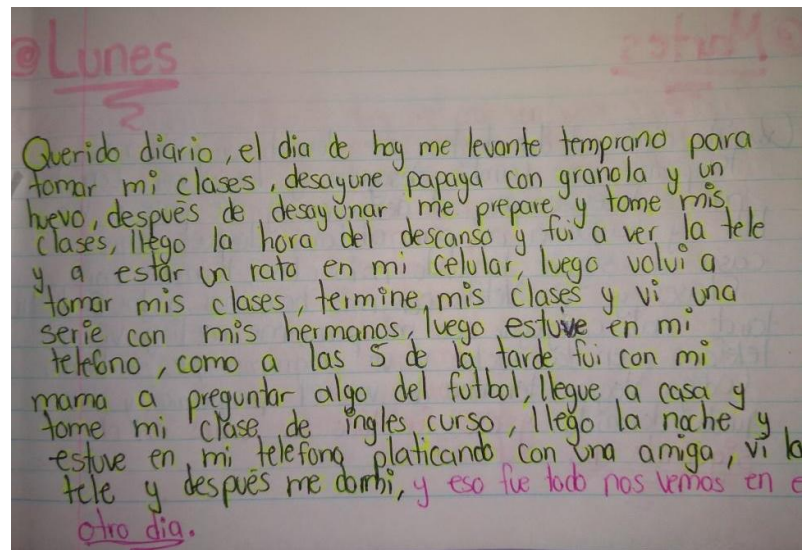 @Lunes
Querido diario, el dia de hoy me levante temprano para
tomar mi clases, desayune papaya con granola y un
huevo, después de desayunar me prepare y tome mis
clases, llego la hora del descanso y fui a ver la tele
y a estar un rato en mi celular, luego volvi a
tomar mis clases, termine mis clases y vi una
serie con mis hermanos, luego estuve en mi
telefono, como a las 5 de la tarde fui con mi
mama a preguntar algo del futbol, llegue a casa y
tome mi clase de ingles curso, llego la noche y
estuve en mi telefono platicando con una amiga, vi la
tele y después me dormi, y eso fue todo nos vemos en e
otro dia.